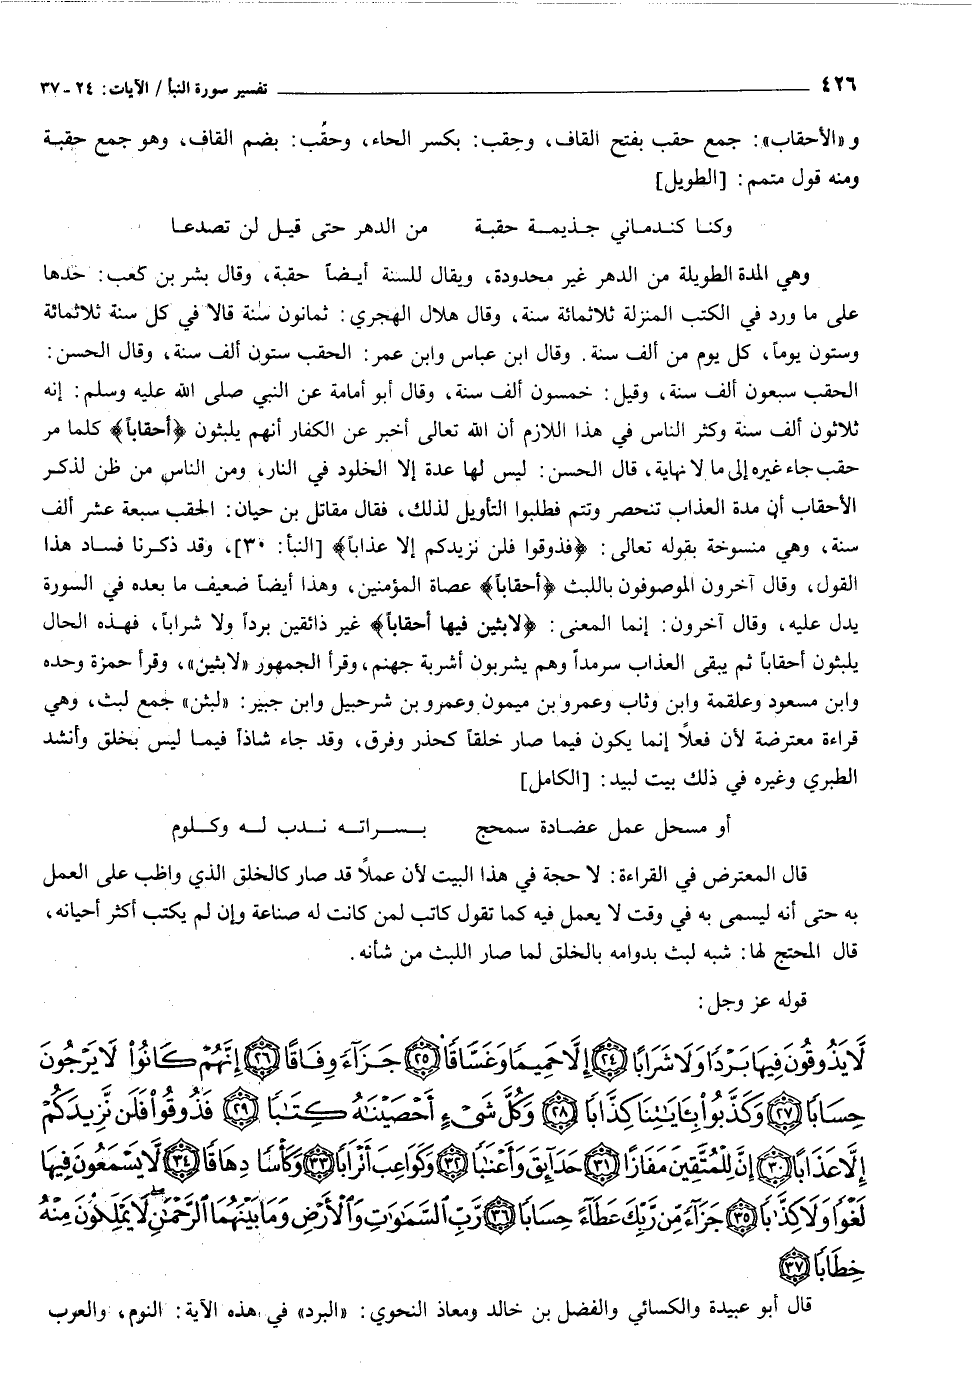 ٤٢٦ ــــــ تفسير سورة النبأ / الآيات: ٢٤ - ٣٧
و «الأحقاب»: جمع حقب بفتح القاف، وحِقب: بكسر الحاء، وحقُب: بضم القاف، وهو جمع حقبة
ومنه قول متمم: [الطويل]
وكنا كندماني جذيمة حقبة من الدهر حتى قيل لن تصدعا
وهي المدة الطويلة من الدهر غير محدودة، ويقال للسنة أيضاً حقبة، وقال بشر بن كعب: حدها
على ما ورد في الكتب المنزلة ثلاثمائة سنة، وقال هلال الهجري: ثمانون سنة قالا في كل سنة ثلاثمائة
وستون يوماً، كل يوم من ألف سنة. وقال ابن عباس وابن عمر: الحقب ستون ألف سنة، وقال الحسن:
الحقب سبعون ألف سنة، وقيل: خمسون ألف سنة، وقال أبو أمامة عن النبي صلى الله عليه وسلم: إنه
ثلاثون ألف سنة وكثر الناس في هذا اللازم أن الله تعالى أخبر عن الكفار أنهم يلبثون ﴿أحقاباً﴾ كلما مر
حقب جاء غيره إلى ما لا نهاية، قال الحسن: ليس لها عدة إلا الخلود في النار، ومن الناس من ظن لذكر
الأحقاب أن مدة العذاب تنحصر وتتم فطلبوا التأويل لذلك، فقال مقاتل بن حيان: الحقب سبعة عشر ألف
سنة، وهي منسوخة بقوله تعالى: ﴿فذوقوا فلن نزيدكم إلا عذاباً﴾ [النبأ: ٣٠]، وقد ذكرنا فساد هذا
القول، وقال آخرون الموصوفون باللبث ﴿أحقاباً﴾ عصاة المؤمنين، وهذا أيضاً ضعيف ما بعده في السورة
يدل عليه، وقال آخرون: إنما المعنى: ﴿لابثين فيها أحقاباً﴾ غير ذائقين برداً ولا شراباً، فهذه الحال
يلبثون أحقاباً ثم يبقى العذاب سرمداً وهم يشربون أشربة جهنم، وقرأ الجمهور «لابثين»، وقرأ حمزة وحده
وابن مسعود وعلقمة وابن وثاب وعمرو بن ميمون وعمرو بن شرحبيل وابن جبير: «لبثن» جمع لبث، وهي
قراءة معترضة لأن فعلاً إنما يكون فيما صار خلقاً كحذر وفرق، وقد جاء شاذاً فيما ليس بخلق وأنشد
الطبري وغيره في ذلك بيت لبيد: [الكامل]
أو مسحل عمل عضادة سمحج بسراته ندب له وكلوم
قال المعترض في القراءة: لا حجة في هذا البيت لأن عملاً قد صار كالخلق الذي واظب على العمل
به حتى أنه ليسمى به في وقت لا يعمل فيه كما تقول كاتب لمن كانت له صناعة وإن لم يكتب أكثر أحيانه،
قال المحتج لها: شبه لبث بدوامه بالخلق لما صار اللبث من شأنه.
قوله عز وجل:
لَّا يَذُوقُونَ فِيهَا بَرْدًا وَلَا شَرَابًا ٢٤ إِلَّا حَمِيمًا وَغَسَّاقًا ٢٥ جَزَآءً وِفَاقًا ٢٦ إِنَّهُمْ كَانُوا۟ لَا يَرْجُونَ
حِسَابًا ٢٧ وَكَذَّبُوا۟ بِـَٔايَـٰتِنَا كِذَّابًا ٢٨ وَكُلَّ شَىْءٍ أَحْصَيْنَـٰهُ كِتَـٰبًا ٢٩ فَذُوقُوا۟ فَلَن نَّزِيدَكُمْ
إِلَّا عَذَابًا ٣٠ إِنَّ لِلْمُتَّقِينَ مَفَازًا ٣١ حَدَآئِقَ وَأَعْنَـٰبًا ٣٢ وَكَوَاعِبَ أَتْرَابًا ٣٣ وَكَأْسًا دِهَاقًا ٣٤ لَّا يَسْمَعُونَ فِيهَا
لَغْوًا وَلَا كِذَّٰبًا ٣٥ جَزَآءً مِّن رَّبِّكَ عَطَآءً حِسَابًا ٣٦ رَّبِّ ٱلسَّمَـٰوَٰتِ وَٱلْأَرْضِ وَمَا بَيْنَهُمَا ٱلرَّحْمَـٰنِ ۖ لَا يَمْلِكُونَ مِنْهُ
خِطَابًا ٣٧
قال أبو عبيدة والكسائي والفضل بن خالد ومعاذ النحوي: «البرد» في هذه الآية: النوم، والعرب